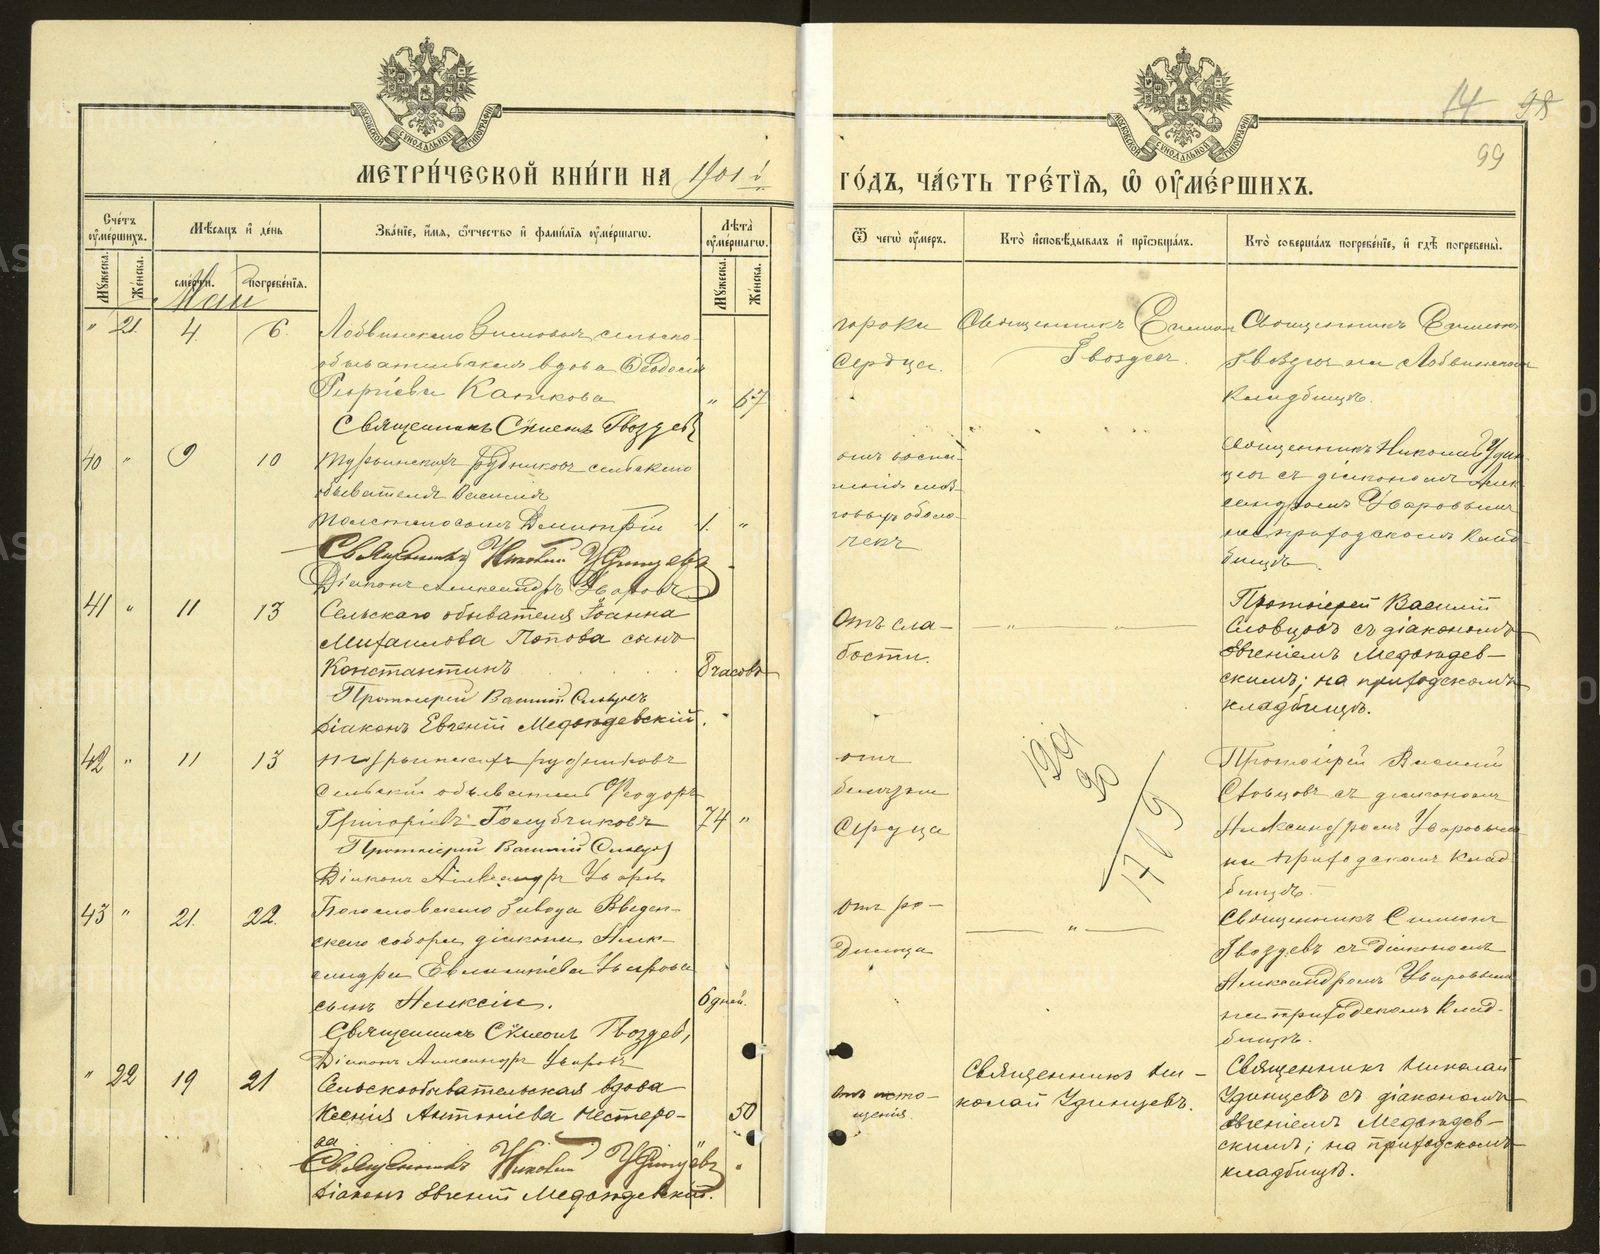 МЕТРИ́ЧЕСКОЙ КНИ́ГИ НА 1901 й
ГО́ДЪ, ЧА́СТЬ ТРЕ́ТІѦ, Ѽ ОУ҆МЕ́РШИХЪ.
14 98
99
Сче́тъ оу҆ме́ршихъ.
Мѣ́сѧцъ и҆ де́нь
Зва́нїе, и҆́мѧ, ѻ҆́тчество и҆ фами́лїѧ оу҆ме́ршагѡ.
Лѣ̑та оу҆ме́ршагѡ.
Ѿ чегѡ̀ оу҆́меръ.
Кто̀ и҆сповѣ́дывалъ и҆ прїѡбща́лъ.
Кто̀ соверша́лъ погребе́нїе, и҆ гдѣ̀ погребены̀.
Мꙋ́жеска. Же́нска. сме́рти. погребе́нїѧ. Мꙋ́жеска. Же́нска.
Маи
" 21. 4. 6.
Лобвинскаго сельско-
обывательская вдова Ѳеодосія
Георгіева Каткова " 67
Священникъ Сѵмеонъ Гвоздевъ
порока
сердца.
Священникъ
Гвоздевъ.
Священникъ
Гвоздевъ на Лобвинскомъ
кладбищѣ.
40 " 9 10
Турьинскихъ рудниковъ сельскаго
обывателя Василія
Димитрій 1. "
Священникъ Николай Удинцевъ
Діаконъ Александръ Уваровъ
отъ воспа-
ленія моз-
говыхъ оболо-
чекъ
Священникъ Николай Удин-
цевъ съ діакономъ Алек-
сандромъ Уваровымъ
на приходскомъ клад-
бищѣ.
41 " 11 13
Сельскаго обывателя Іоанна
Михаилова Попова сынъ
Константинъ 8 часовъ
Протоіерей Василій Словцовъ
Діаконъ Евгеній Медвѣдевскій.
Отъ сла-
бости.
— " — " —
Протоіерей Василій
Словцовъ съ діакономъ
Евгеніемъ Медвѣдев-
скимъ; на приходскомъ
кладбищѣ.
42 " 11 13
Турьинскихъ рудниковъ
сельскій обыватель Ѳеодоръ
Григоріевъ Голубчиковъ 74 "
Протоіерей Василій Словцовъ
Діаконъ Александръ Уваровъ
отъ
болѣзни
сердца
Протоіерей Василій
Словцовъ съ діакономъ
Александромъ Уваровымъ
на приходскомъ клад-
бищѣ.
43 " 21. 22.
Богословскаго завода Введен-
скаго собора діакона Алек-
сандра Евлампіева Уварова
сынъ Алексій. 6 дней.
Священникъ Сѵмеонъ Гвоздевъ,
Діаконъ Александръ Уваровъ
отъ ро-
димца
— " —
Священникъ Симеонъ
Гвоздевъ съ діакономъ
Александромъ Уваровымъ
на приходскомъ клад-
бищѣ.
" 22 19 21
Сельскообывательская вдова
Ксенія Антоніева Нестеро- 50
ва
Священникъ Николай Удинцевъ
Діаконъ Евгеній Медвѣдевскій.
отъ исто-
щенія.
Священникъ Ни-
колай Удинцевъ.
Священникъ Николай
Удинцевъ съ діакономъ
Евгеніемъ Медвѣдев-
скимъ; на приходскомъ
кладбищѣ.